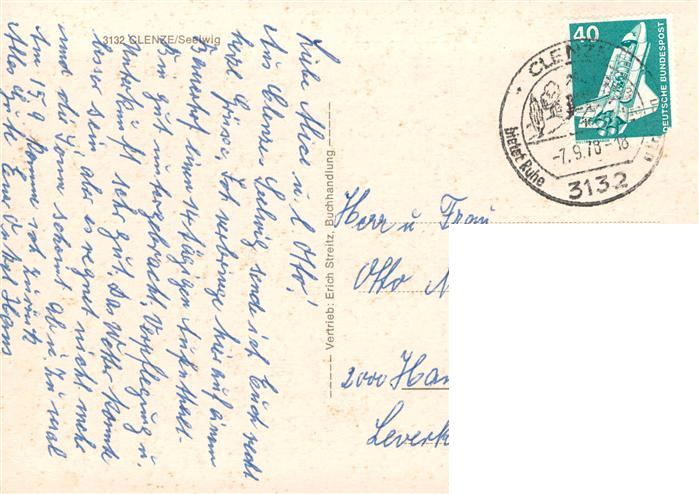 3132 CLENZE/Seelwig
Liebe Alice u. l Otto!
Aus Clenze Seelwig sende ich Euch recht
herzl. Grüsse. Ich verbringe hier auf einem
Bauernhof einen 14 tägigen Aufenthalt.
Bin gut untergebracht, Verpflegung u.
Unterkunft sehr gut. Das Wetter könnte
besser sein aber es regnet nicht mehr
und die Sonne scheint ab u. zu mal
Am 15.9 komme ich zurück
Alles Gute Euer Onkel Hans
Vertrieb: Erich Streitz, Buchhandlung
40
DEUTSCHE BUNDESPOST
CLENZ
bietet Ruhe
-7.9.78-18
3132
Herr u Frau
Otto
2000 Ham
Leverk